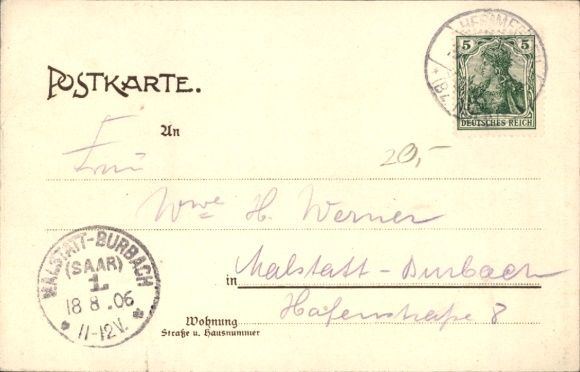 POSTKARTE.
5 5
DEUTSCHES REICH
An
Frau
20,-
Wwe H. Werner
in Malstatt-Burbach
Wohnung Hafenstraße 8
Straße u. Hausnummer
MALSTATT-BURBACH
(SAAR)
1
18 8.06
11-12V.